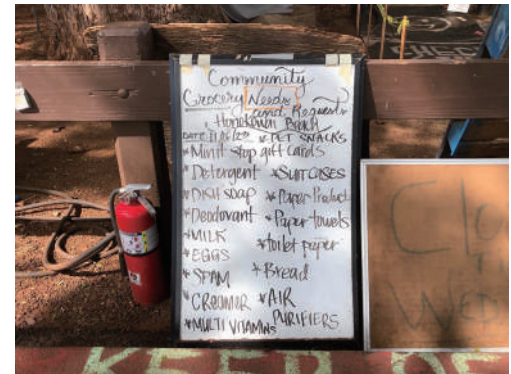 Community
Grocery Needs
and Requests
Honokowai Beach
DATE: * PET SNACKS
* Minit stop gift cards
* Detergent * SUITCISES
* DISH SOAP * Paper Product
* Deodorant * Paper towels
* MILK * toilet paper
* EGGS
* SPAM * Bread
* CREAMER * AIR
PURIFIERS
* MULTI VITAMINS
KEEP